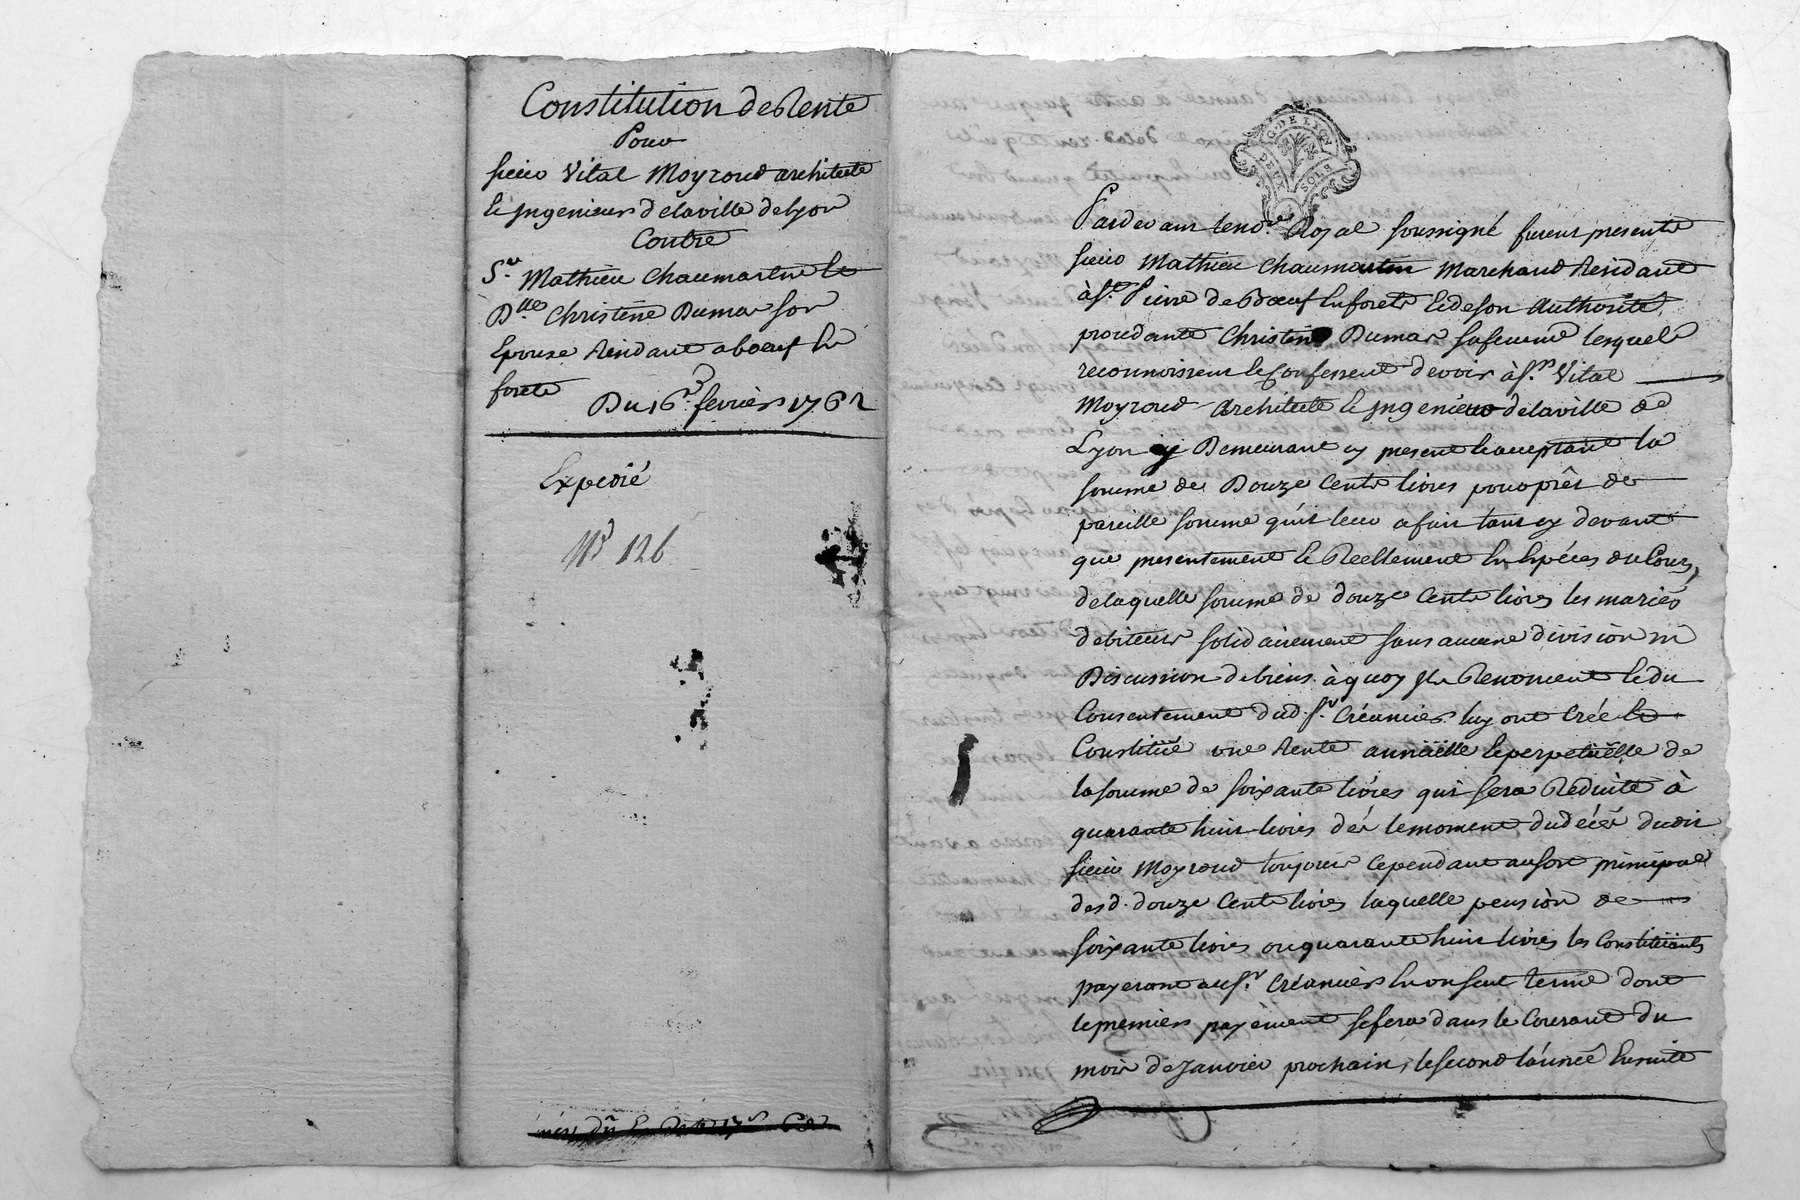 Constitution de Rente
Pour
sieur Vital Moyroud architecte
& jngenieur de la ville de lyon
Contre
S.r Mathieu Chaumartin &
D.lle Christine Dumas son
Epouse Residant a boeuf En
forets
Du 16. fevrier 1762
Expedié
N 126
G. DE LYON
DEUX SOLS
Pardevant le no.re Royal soussigné furent presents
sieur Mathieu Chaumartin Marchand Residant
à S.t Pierre de Boeuf En forets & de son Authorité
procedante Christine Dumas sa femme lesquels
reconnoissent & Confessent devoir à S.r Vital
Moyroud Architecte & jngenieur de la ville de
Lyon y Demeurant cy present & acceptant la
somme de Douze Cents livres pour prêt de
pareille somme qu'il leur a fait tant cy devant
que presentement & Reellement En Espéces du Cours,
de laquelle somme de douze Cents livres les mariés
debiteurs solidairement sans aucune division ni
Discussion de biens à quoy jls Renoncent & du
Consentement dud. S.r Créancier luy ont Créé &
Constitüé une Rente annüelle & perpetüelle de
la somme de soixante livres qui séra Réduitte à
quarante huit livres dés le moment du décés dudit
sieur Moyroud toujours cependant au sort principal
desd. douze Cents livres laquelle pension de
soixante livres ou quarante huit livres les Constitüants
payeront au S.r Créancier En un seul terme dont
le premier payement se fera dans le Courant du
mois de Janvier prochain, le second l'année Ensuitte